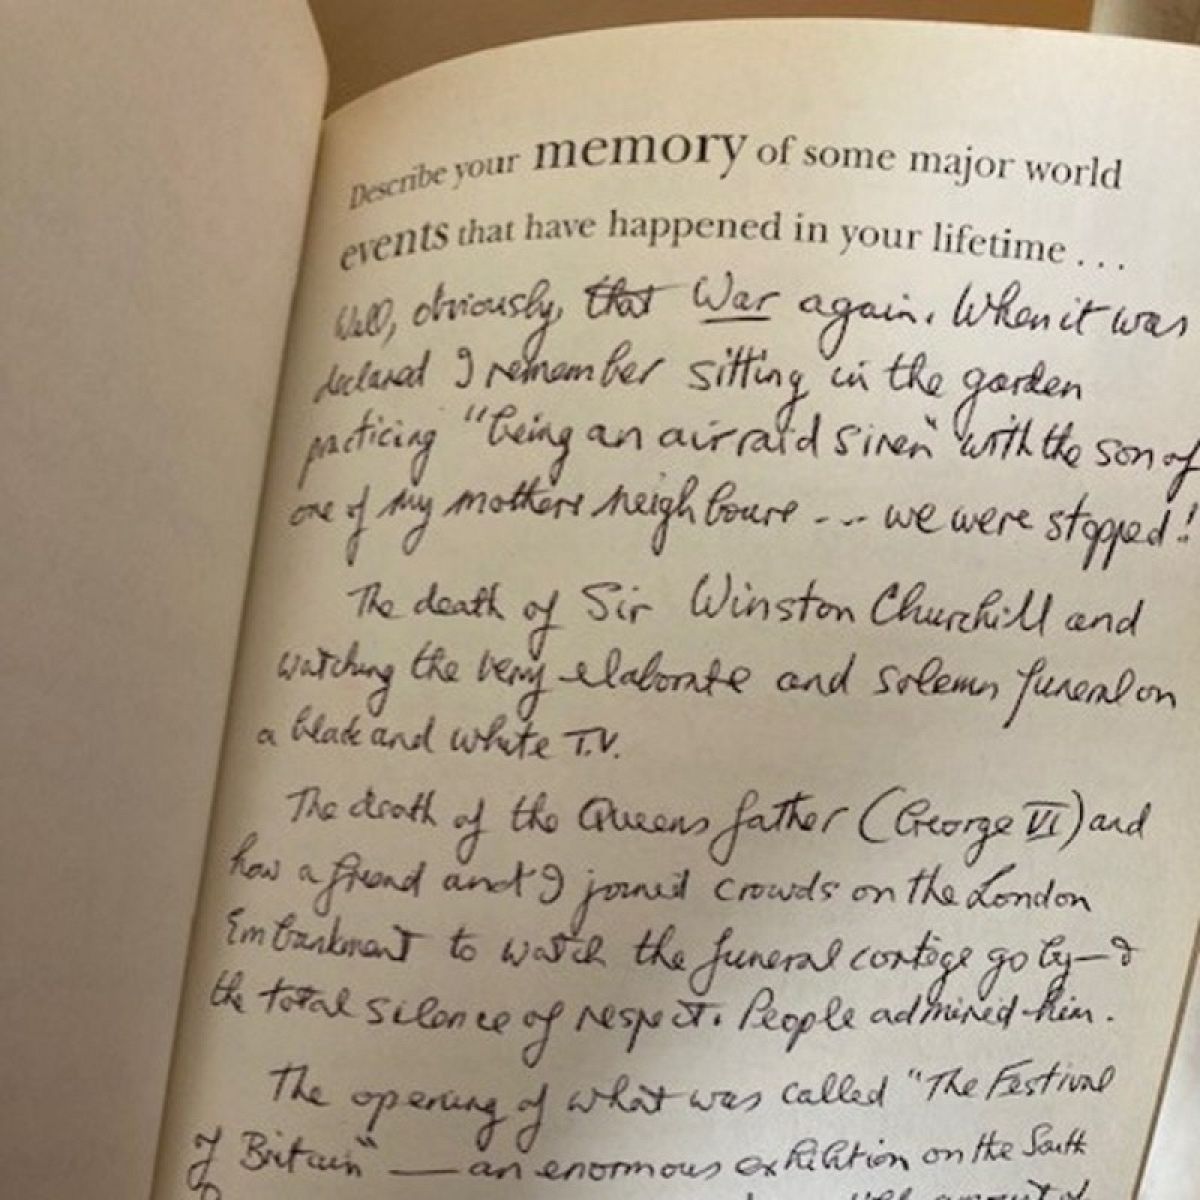 Describe your memory of some major world
events that have happened in your lifetime . . .
Well, obviously, that War again. When it was
declared I remember sitting in the garden
practicing "being an air raid siren" with the son of
one of my mothers neighbours --- we were stopped!
The death of Sir Winston Churchill and
watching the very elaborate and solemn funeral on
a black and white T.V.
The death of the Queens father (George VI) and
how a friend and I joined crowds on the London
Embankment to watch the funeral cortège go by — &
the total silence of respect. People admired him.
The opening of what was called "The Festival
of Britain" — an enormous exhibition on the South
amount of